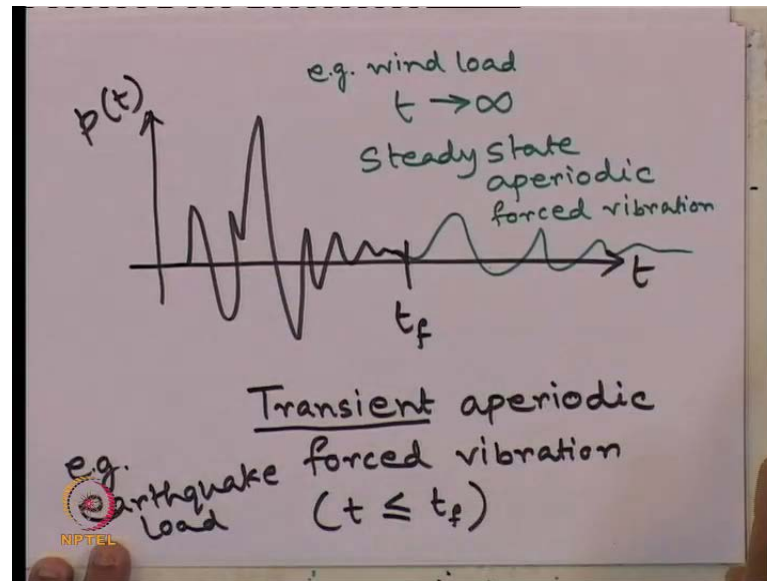 e.g. wind load
t → ∞
p(t)
Steady state
aperiodic
forced vibration
t
t_f
Transient aperiodic
e.g. forced vibration
earthquake
load (t ≤ t_f)
NPTEL